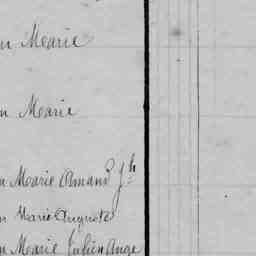 n Marie
n Marie
n Marie Amand Jh
n Marie Auguste
n Marie Julien Ange